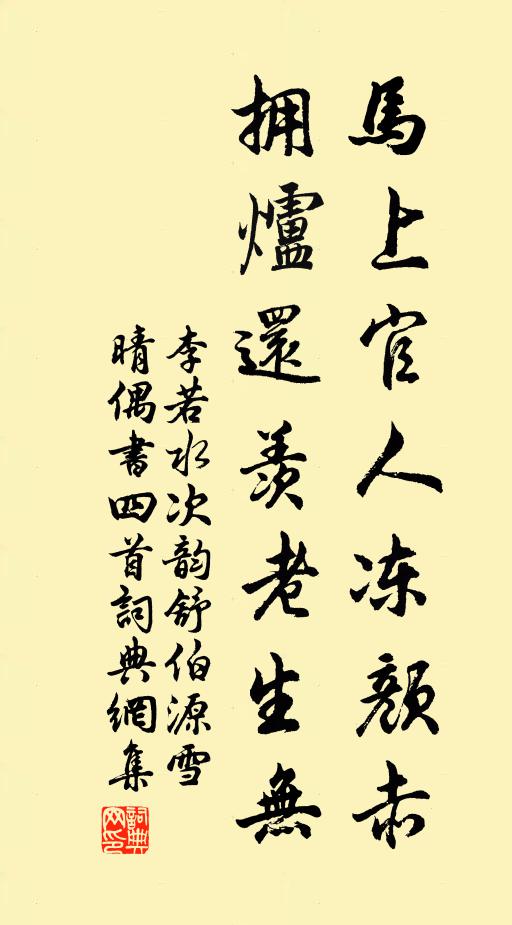 馬上官人冻颜赤
拥爐還羨老生無
李若水次韵舒伯源雪
晴偶書四首詞典網集
詞典
网印